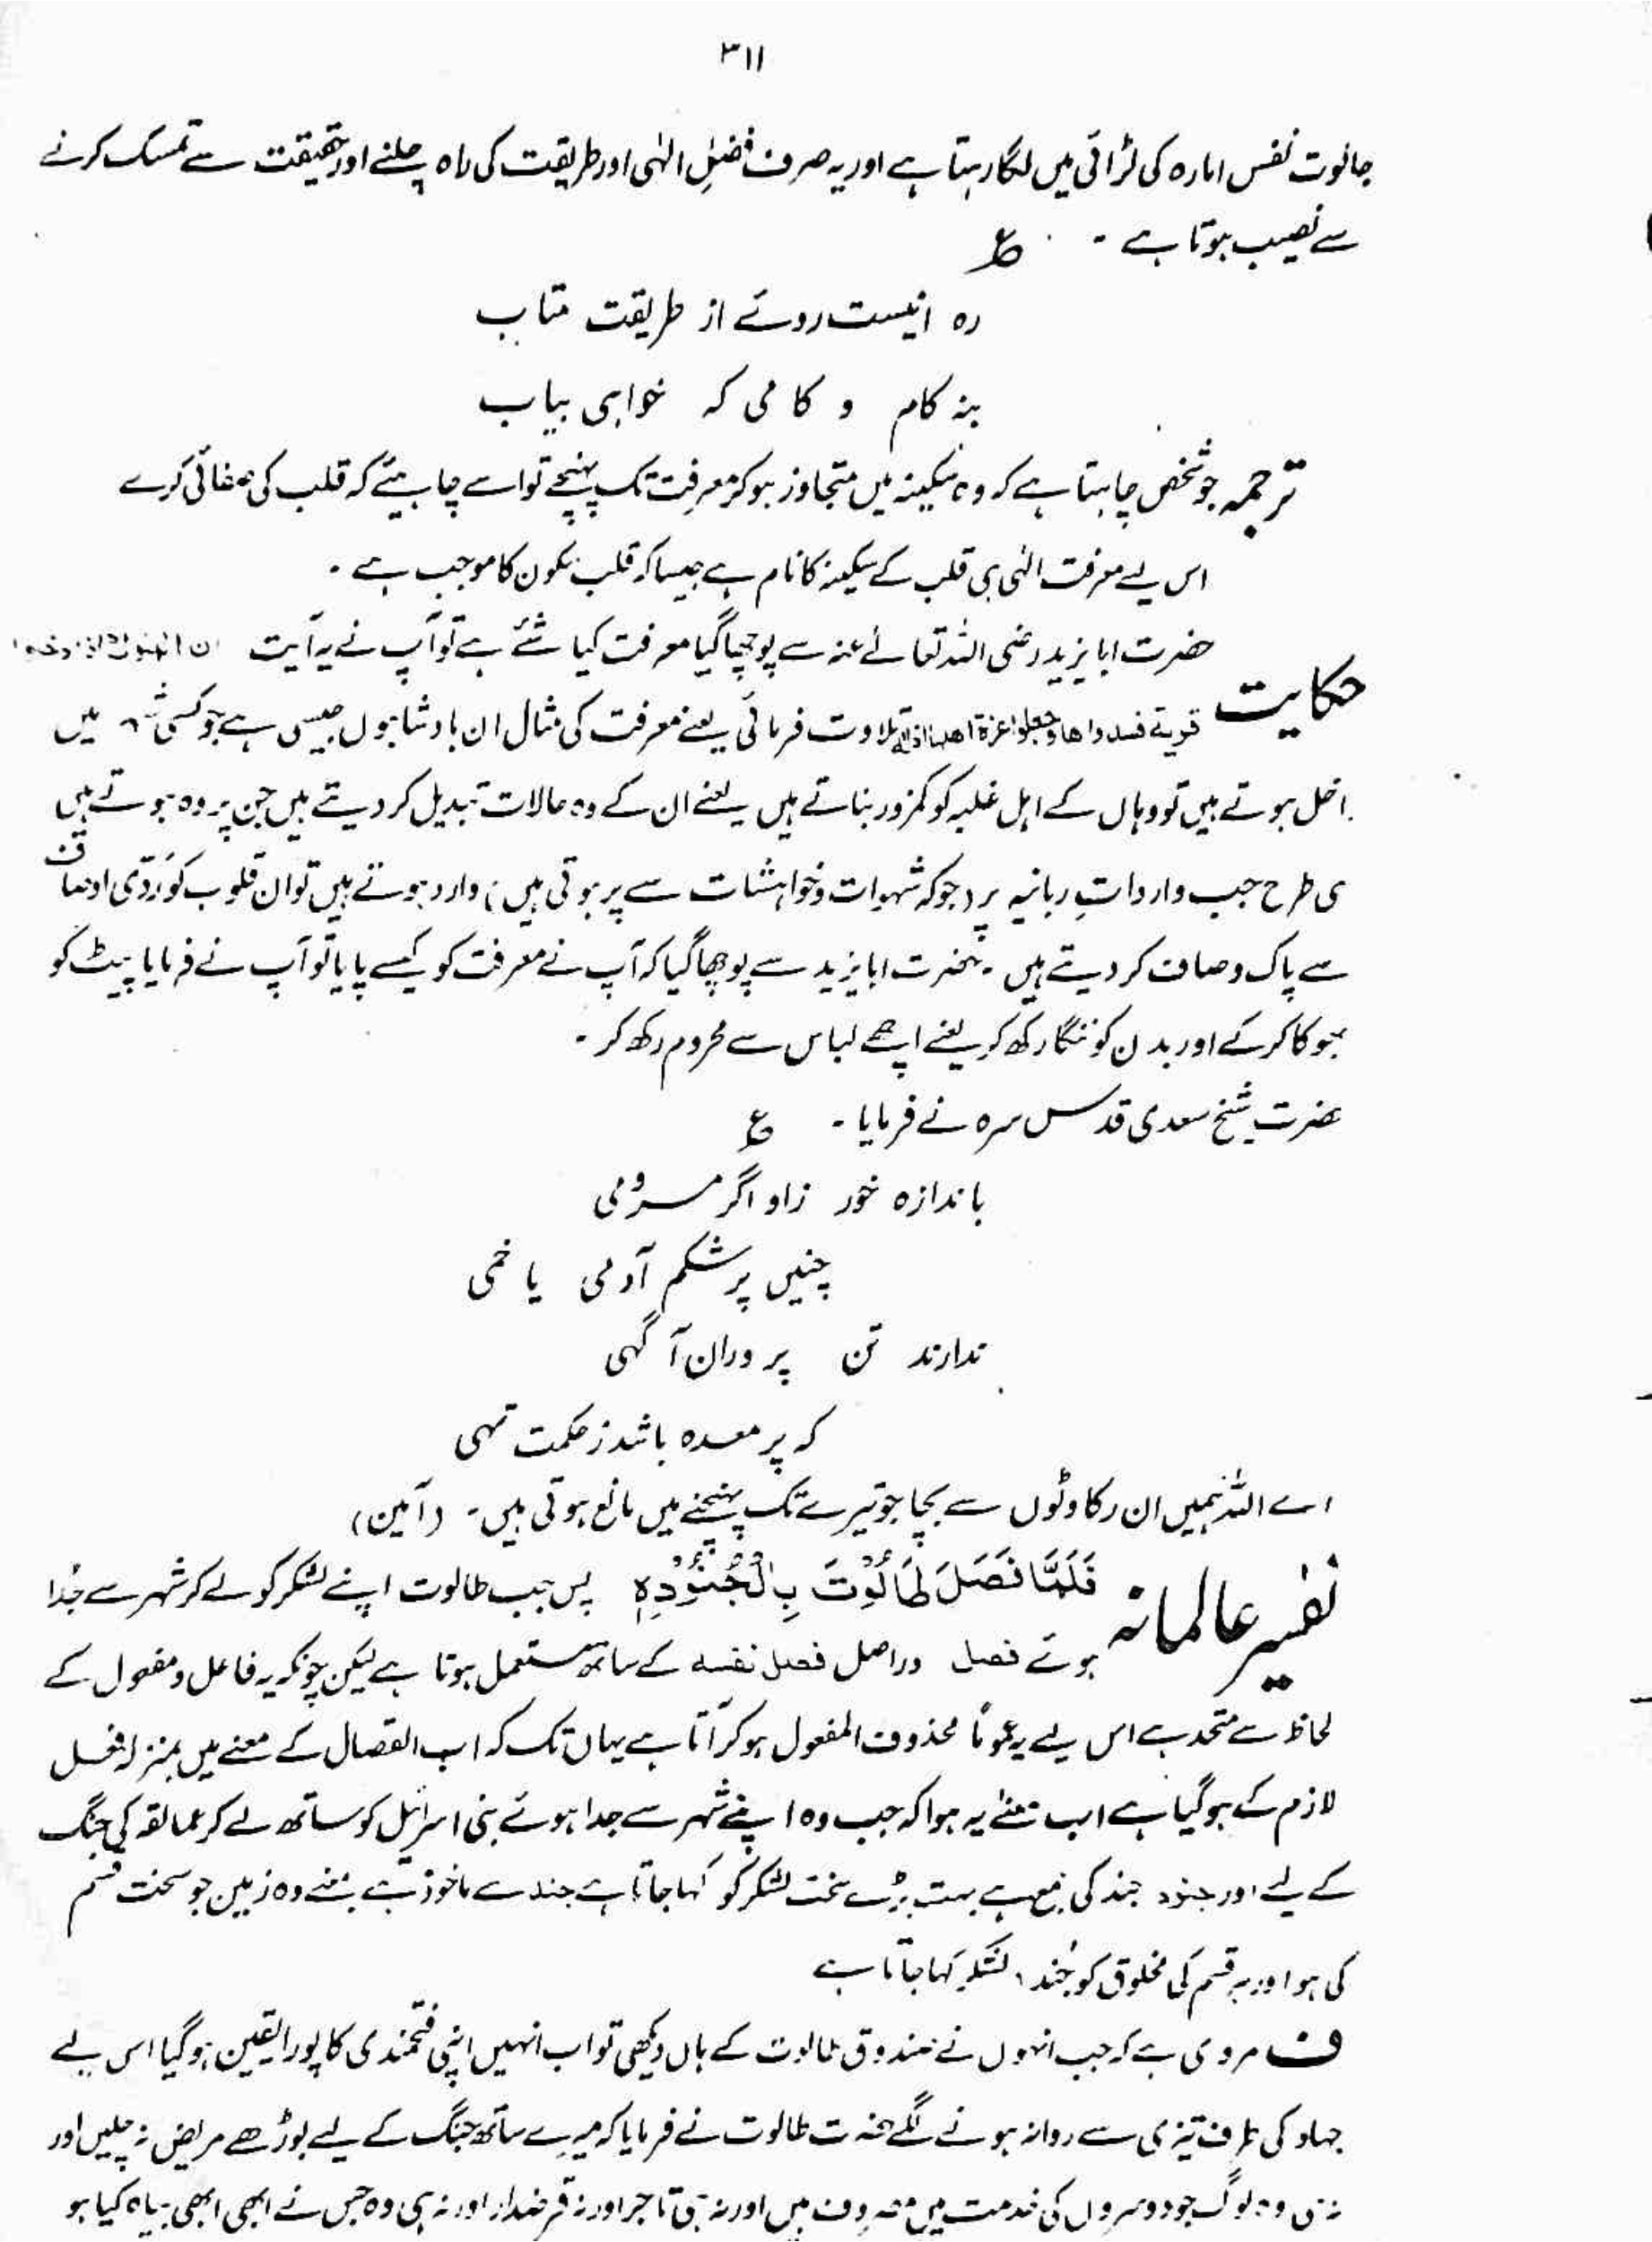 ۳۱۱
جالوت نفس امارہ کی لڑائی میں لگا رہتا ہے اور یہ صرف فضلِ الہٰی اور طریقت کی راہ چلنے اور حقیقت سے تمسک کرنے
سے نصیب ہوتا ہے ۔ ع
رہ اینست روئے از طریقت متاب
بنہ کام و کامی کہ خواہی بیاب
ترجمہ جو شخص چاہتا ہے کہ وہ سکینہ میں متجاوز ہو کر معرفت تک پہنچے تو اسے چاہیئے کہ قلب کی صفائی کرے
اس لیے معرفت الٰہی ہی قلب کے سکینہ کا نام ہے جیسا کہ قلب سکون کا موجب ہے ۔
حکایت حضرت ابا یزید رضی اللہ تعالےٰ عنہ سے پوچھا گیا معرفت کیا شئے ہے تو آپ نے یہ آیت ان الملوک اذا دخلوا
قریۃ فسدواھا وجعلوا اعزۃ اھلہا اذلۃ تلاوت فرمائی یعنے معرفت کی مثال ان بادشاہوں جیسی ہے جو کسی شہر میں
داخل ہوتے ہیں تو وہاں کے اہل غلبہ کو کمزور بناتے ہیں یعنے ان کے وہ حالات تبدیل کر دیتے ہیں جن پر وہ ہوتے ہیں
ی طرح جب وارداتِ ربانیہ پر (جو کہ شہوات و خواہشات سے پر ہوتی ہیں) وارد ہوتے ہیں تو ان قلوب کو ردّی اوصاف
سے پاک و صاف کر دیتے ہیں ۔ حضرت ابا یزید سے پوچھا گیا کہ آپ نے معرفت کو کیسے پایا تو آپ نے فرمایا پیٹ کو
بھوکا کر کے اور بدن کو ننگا رکھ کر یعنے اچھے لباس سے محروم رکھ کر ۔
حضرت شیخ سعدی قدس سرہ نے فرمایا ۔ ع
باندازہ خور زاد اگر مردمی
چنیں پر شکم آدمی یا خمی
ندارند تن پروران آگہی
کہ پر معدہ باشد ز حکمت تہی
اے اللہ ہمیں ان رکاوٹوں سے بچا جو تیرے تک پہنچنے میں مانع ہوتی ہیں ۔ (آمین)
تفسیر عالمانہ فَلَمَّا فَصَلَ طَالُوْتَ بِالْجُنُوْدِہٖ پس جب طالوت اپنے لشکر کو لے کر شہر سے جُدا
ہوئے فصل دراصل فصل نفسہ کے ساتھ مستعمل ہوتا ہے لیکن چونکہ یہ فاعل و مفعول کے
لحاظ سے متحد ہے اس لیے یہ عموماً محذوف المفعول ہو کر آتا ہے یہاں تک کہ اب انفصال کے معنے میں بمنزلہ فعل
لازم کے ہو گیا ہے اب معنےٰ یہ ہوا کہ جب وہ اپنے شہر سے جدا ہوئے بنی اسرائیل کو ساتھ لے کر عمالقہ کی جنگ
کے لیے اور جنود جند کی جمع ہے بہت بڑے سخت لشکر کو کہا جاتا ہے جند سے ماخوذ ہے بمعنے وہ زمین جو سخت قسم
کی ہو اور ہر قسم کی مخلوق کو جُند ، لشکر کہا جاتا ہے
ف مروی ہے کہ جب انہوں نے صندوق طالوت کے ہاں دیکھی تو اب انہیں اپنی فتحمندی کا پورا یقین ہو گیا اس لیے
جہاد کی طرف تیزی سے روانہ ہونے لگے حضرت طالوت نے فرمایا کہ میرے ساتھ جنگ کے لیے بوڑھے مریض نہ چلیں اور
نہ ہی وہ لوگ جو دوسروں کی خدمت میں مصروف ہیں اور نہ ہی تاجر اور نہ قرضدار اور نہ ہی وہ جس نے ابھی ابھی بیاہ کیا ہو